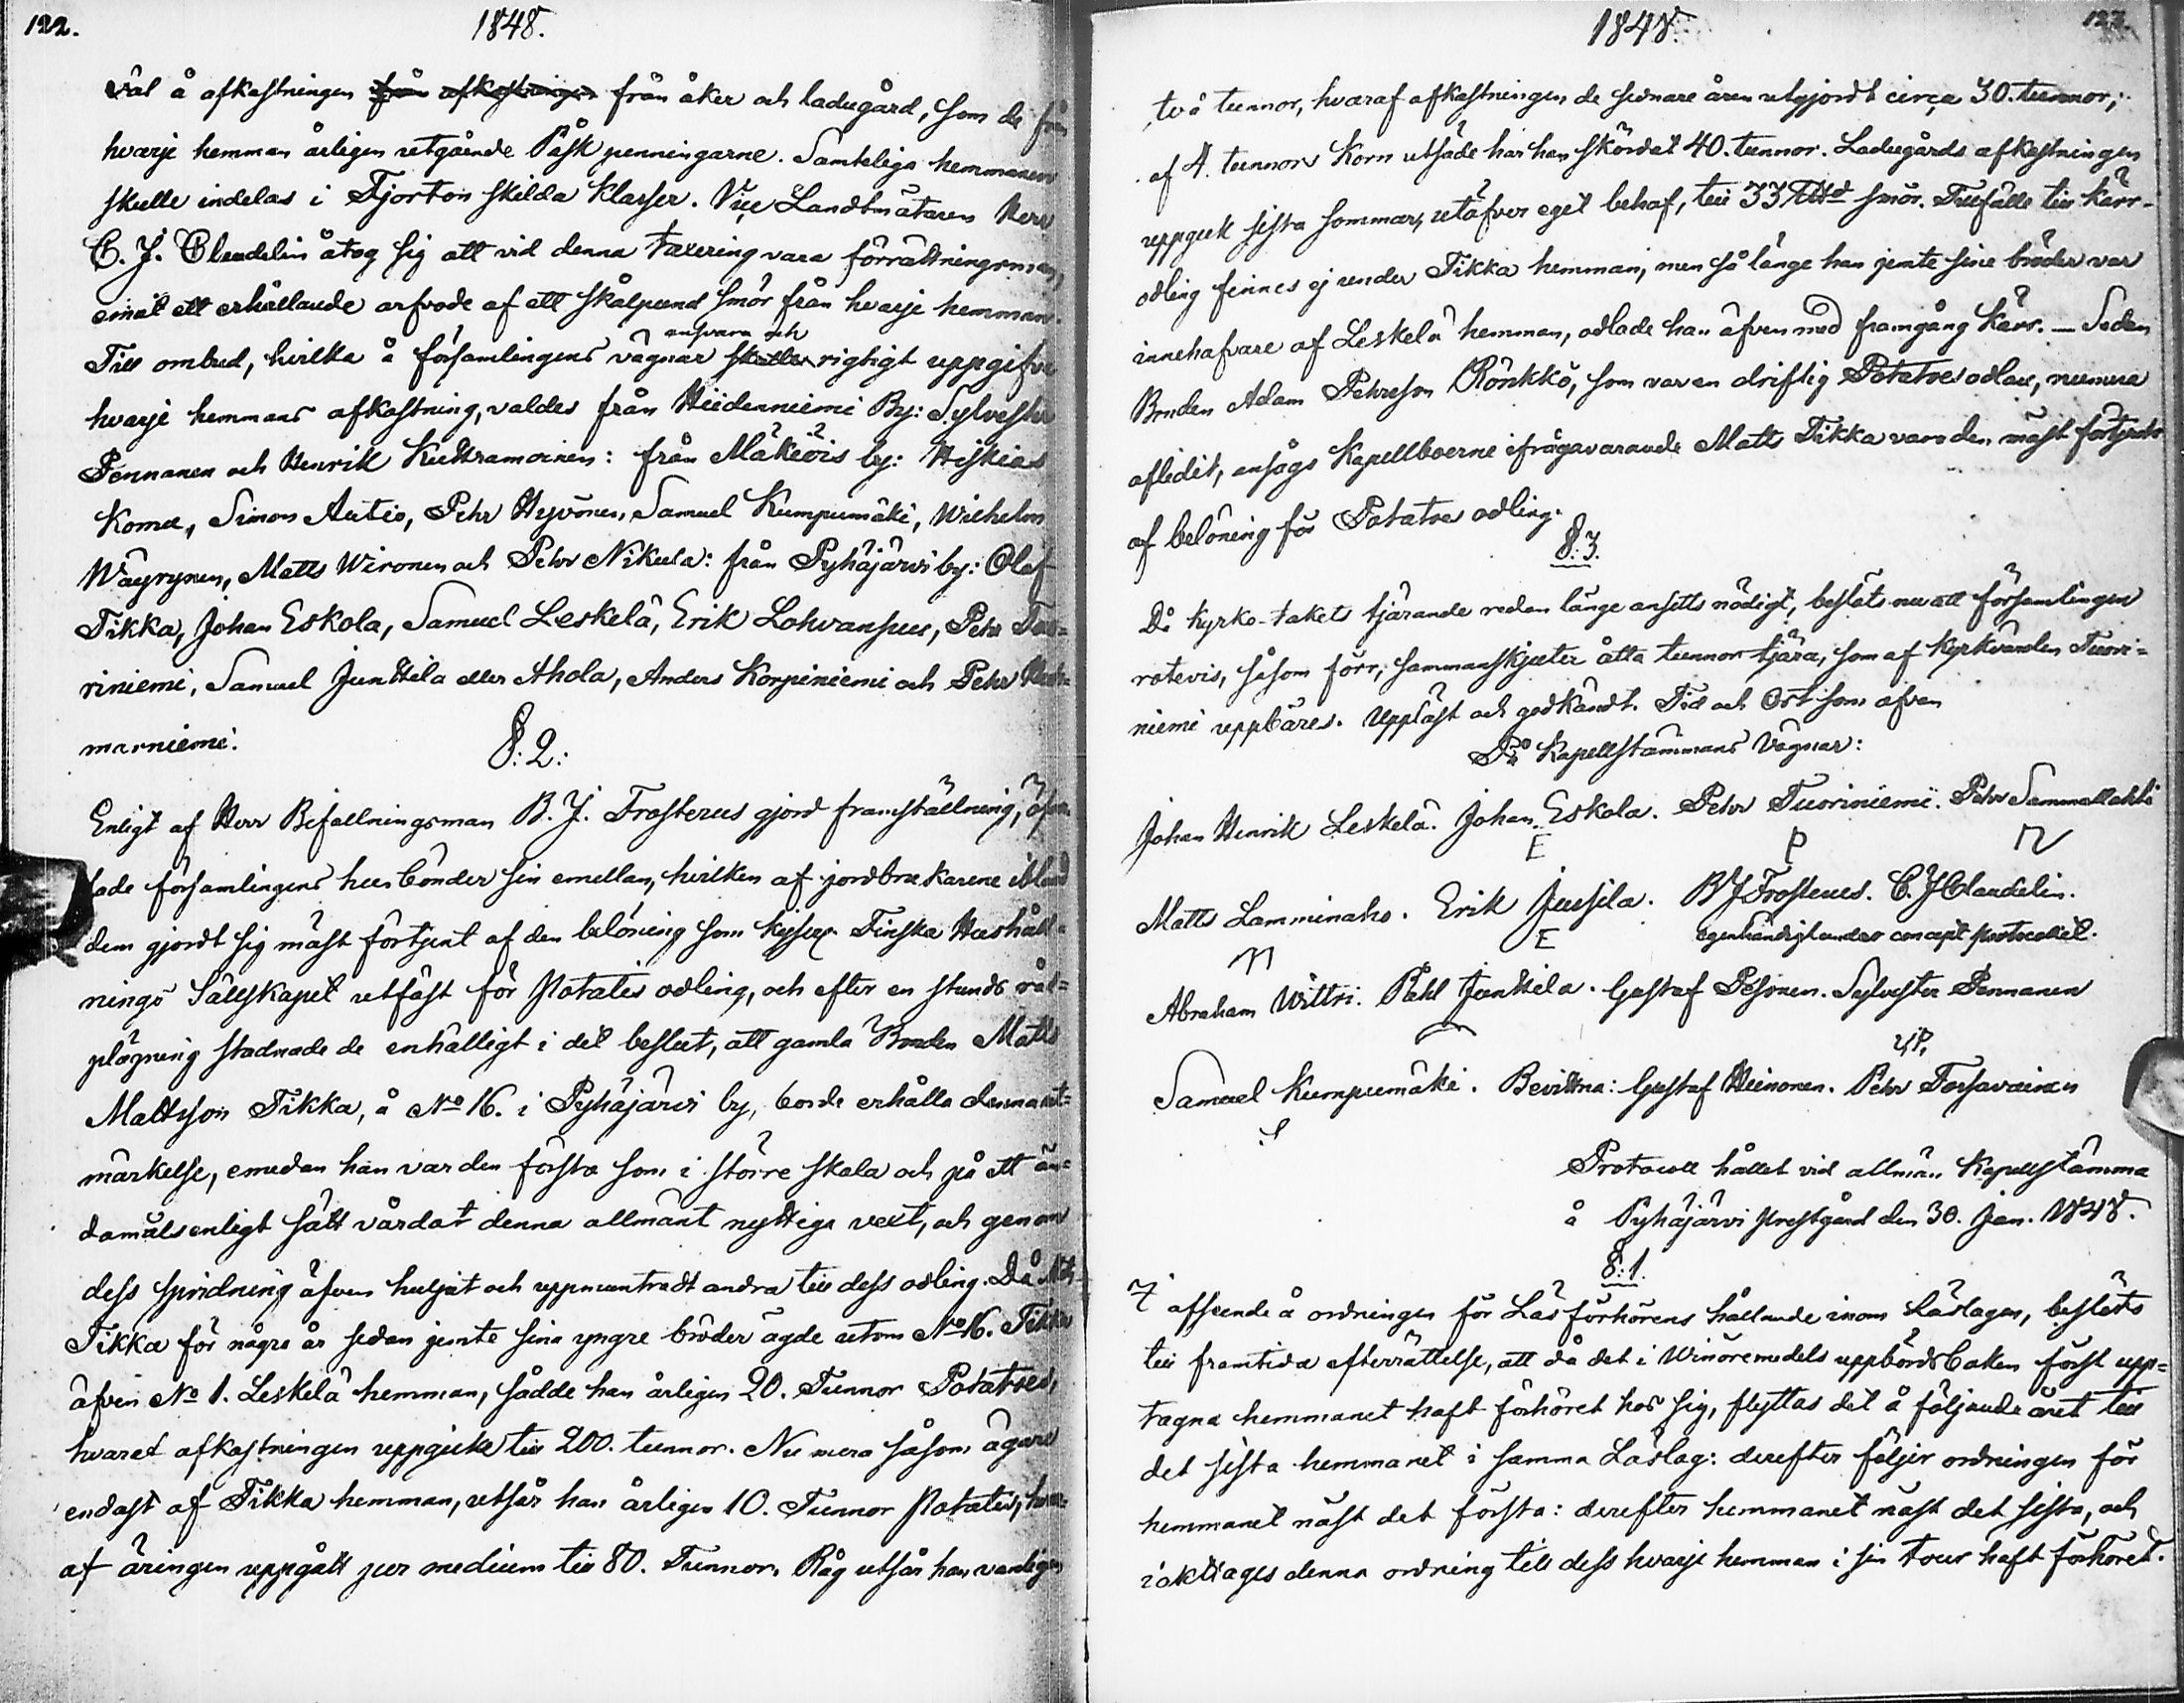 122.
1848.
väl å afkastningen från afkastningen från åker och ladugård, som de från
hvarje hemman årligen utgående Påsk penningarne. Samteliga hemmanen
skulle indelas i Fjorton skilda Klasser. Viçe Landtmätaren Herr
C. J. Claudelin åtog sig att vid denna taxering vara förrättningsman,
emot ett erhållande arfvode af ett skålpund smör från hvarje hemman.
ansvara och
Till ombud, hvilka å församlingens vägnar skulle rigtigt uppgifva
hvarje hemmans afkastning, valdes från Hiidenniemi By: Sylvester
Pennanen och Henrik Kuttramoinen: från Mäkiöis by: Hiskias
Koma, Simon Autio, Pehr Hyvönen, Samuel Kumpumäki, Wilhelm
Wäyrynen, Matts Wironen och Pehr Nikula: från Pyhäjärvi by: Olof
Tikka, Johan Eskola, Samuel Leskelä, Erik Lohvansuu, Pehr Tuo-
riniemi, Samuel Junttila eller Ahola, Anders Korpiniemi och Pehr
marniemi.
§. 2:
Enligt af Herr Befallningsman B. J. Frosterus gjord framställning,
lade församlingens husbönder sin emellan, hvilken af jordbrukarene ibland
dem gjordt sig mäst förtjent af den belöning som Kejserl. Finska Hushåll-
nings Sällskapet utfäst för Potates odling, och efter en stunds råd-
plägning stadnade de enhälligt i det beslut, att gamla Bonden Matts
Mattsson Tikka, å No 16. i Pyhäjärvi by, borde erhålla denna ut-
märkelse, emedan han var den första som i större skala och på ett än-
damålsenligt sätt vårdat denna allmänt nyttiga vext, och genom
dess spridning äfven huljat och uppmuntradt andra till dess odling. Då Matts
Tikka för några år sedan jemte sina yngre bröder ägde utom No 16. Tikka
äfven No 1. Leskelä hemman, sådde han årligen 20. Tunnor Potatoes,
hvaraf afkastningen uppgick till 200. tunnor. Nu mera såsom ägare
endast af Tikka hemman, utsår han årligen 10. Tunnor Potates, hvar-
af äringen uppgått per medium till 80. Tunnor. Råg utsår han vanligen
1848.
123.
två tunnor, hvaraf afkastningen de sednare åren utgjordt cirça 30. tunnor;
af 4. tunnors Korn utsäde har han skördat 40. tunnor. Ladugårds afkastningen
uppgick sista sommar, utöfver eget behof, till 33 smör. Tillfälle till kärr-
odling finnes ej under Tikka hemman, men så länge han jemte sine bröder var
innehafvare af Leskelä hemman, odlade han äfven med framgång Kärr. — Sedan
Bonden Adam Pehrsson Rönkkö, som var en driftig Potatoesodlare, numera
aflidit, ansågs Kapellboerne ifrågavarande Matts Tikka vara den mäst förtjente
af belöning för Potatoes odling.
§. 3.
Då Kyrko-takets tjärande redan länge ansetts nödigt, beslöts nu att församlingen
rotevis, såsom förr, sammanskjuter åtta tunnor tjära, som af Kyrkvärden Tuori-
niemi uppbäres. Uppläst och godkändt. Tid och Ort som ofvan
På Kapellstämmans Vägnar:
Johan Henrik Leskelä. Johan Eskola. Pehr Tuoriniemi. Pehr Sammallahti
E P
Matts Lamminaho. Erik Jussila. B J Frosterus. C. J Claudelin.
M E egenhändigt under concept protocollet.
Abraham Wittri. Påhl Junttila. Gustaf Pesonen. Sylvester Pennanen
Samuel Kumpumäki. Bevittna: Gustaf Heinonen. Pehr Forsavainen
Protocoll hållet vid allmän Kapellstämma
å Pyhäjärvi Prestgård den 30. Jan. 1848.
§. 1.
I afseende å ordningen för Läsförhörens hållande inom Läslagen, beslöts
till framtida efterrättelse, att då det i Winöremedels uppbördsboken först upp-
tagna hemmanet haft förhöret hos sig, flyttas det å följande året till
det sista hemmanet i samma Läslag: derefter följer ordningen för
hemmanet näst det första: derefter hemmanet näst det sista, och
iakttages denna ordning till dess hvarje hemman i sin tour haft förhöret.